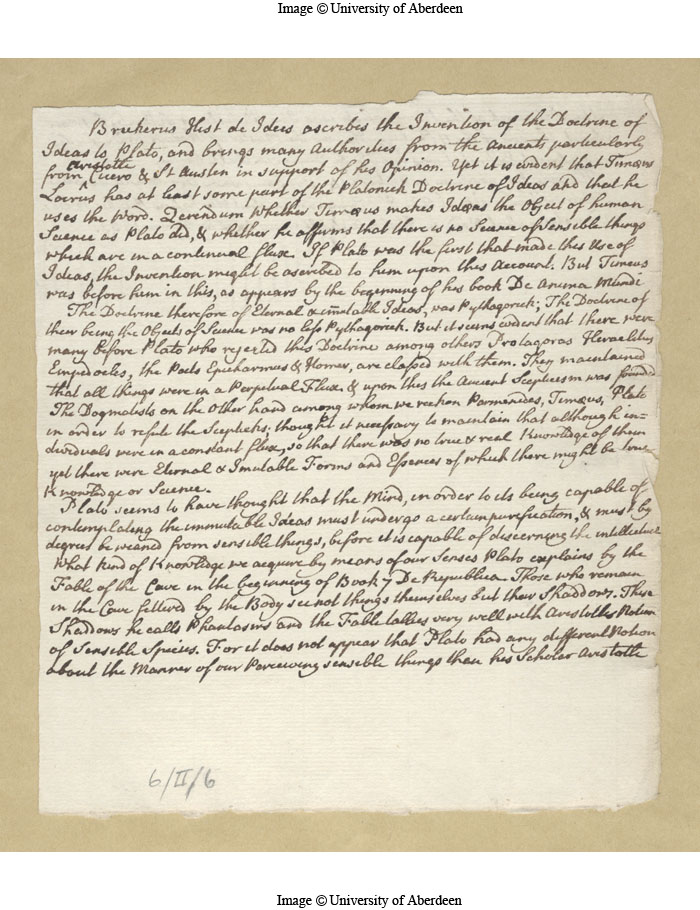 Image © University of Aberdeen
Brukerus Hist de Ideis ascribes the Invention of the Doctrine of
Ideas to Plato, and brings many Authorities from the Ancients particularly
Aristotle
from Cicero & St Austen in support of his Opinion. Yet it is evident that Timæus
Locrus has at least some part of the Platonick Doctrine of Ideas and that he
uses the Word. Qærendum Whether Timæus makes Ideas the Object of human
Science as Plato did, & whether he affirms that there is no Science of Sensible things
which are in a continual fluxe. If Plato was the first that made this Use of
Ideas, the Invention might be ascribed to him upon this Account. But Timeus
was before him in this, as appears by the beginning of his book De Anima Mundi
The Doctrine therefore of Eternal & imutable Ideas, was Pythagorick; The Doctrine of
their being the Objects of Science was no less Pythagorick. But it seems evident that there were
many before Plato who rejected this Doctrine among others Protagoras Heraclitus
Empedocles, the Poets Epicharmus & Homer, are classed with them. They maintained
that all things were in a Perpetual Flux. & upon this the Ancient Scepticism was founded
The Dogmatists on the Other hand among whom we reckon Parmenides, Timæus, Plato
in order to refute the Scepticks; thought it necessary to maintain that although in-
dividuals were in a constant flux, so that there was no true & real Knowledge of them
yet there were Eternal & Imutable Forms and Essences of which there might be true
Knowledge or Science.
Plato seems to have thought that the Mind, in order to its being capable of
contemplating the immutable Ideas must undergo a certain purification, & must by
degrees be weaned from sensible things, before it is capable of discerning the intellectual
What kind of Knowledge we acquire by means of our Senses Plato explains by the
Fable of the Cave in the beginning of Book 7 De Republica. Those who remain
in the Cave fettered by the Body see not things themselves but their Shaddows. These
Shaddows he calls Phantasms and the Fable tallies very well with Aristotles Notion
of Sensible Species. For it does not appear that Plato had any different Notion
about the Manner of our Perceiving sensible things than his Scholar Aristotle
6/II/6
Image © University of Aberdeen